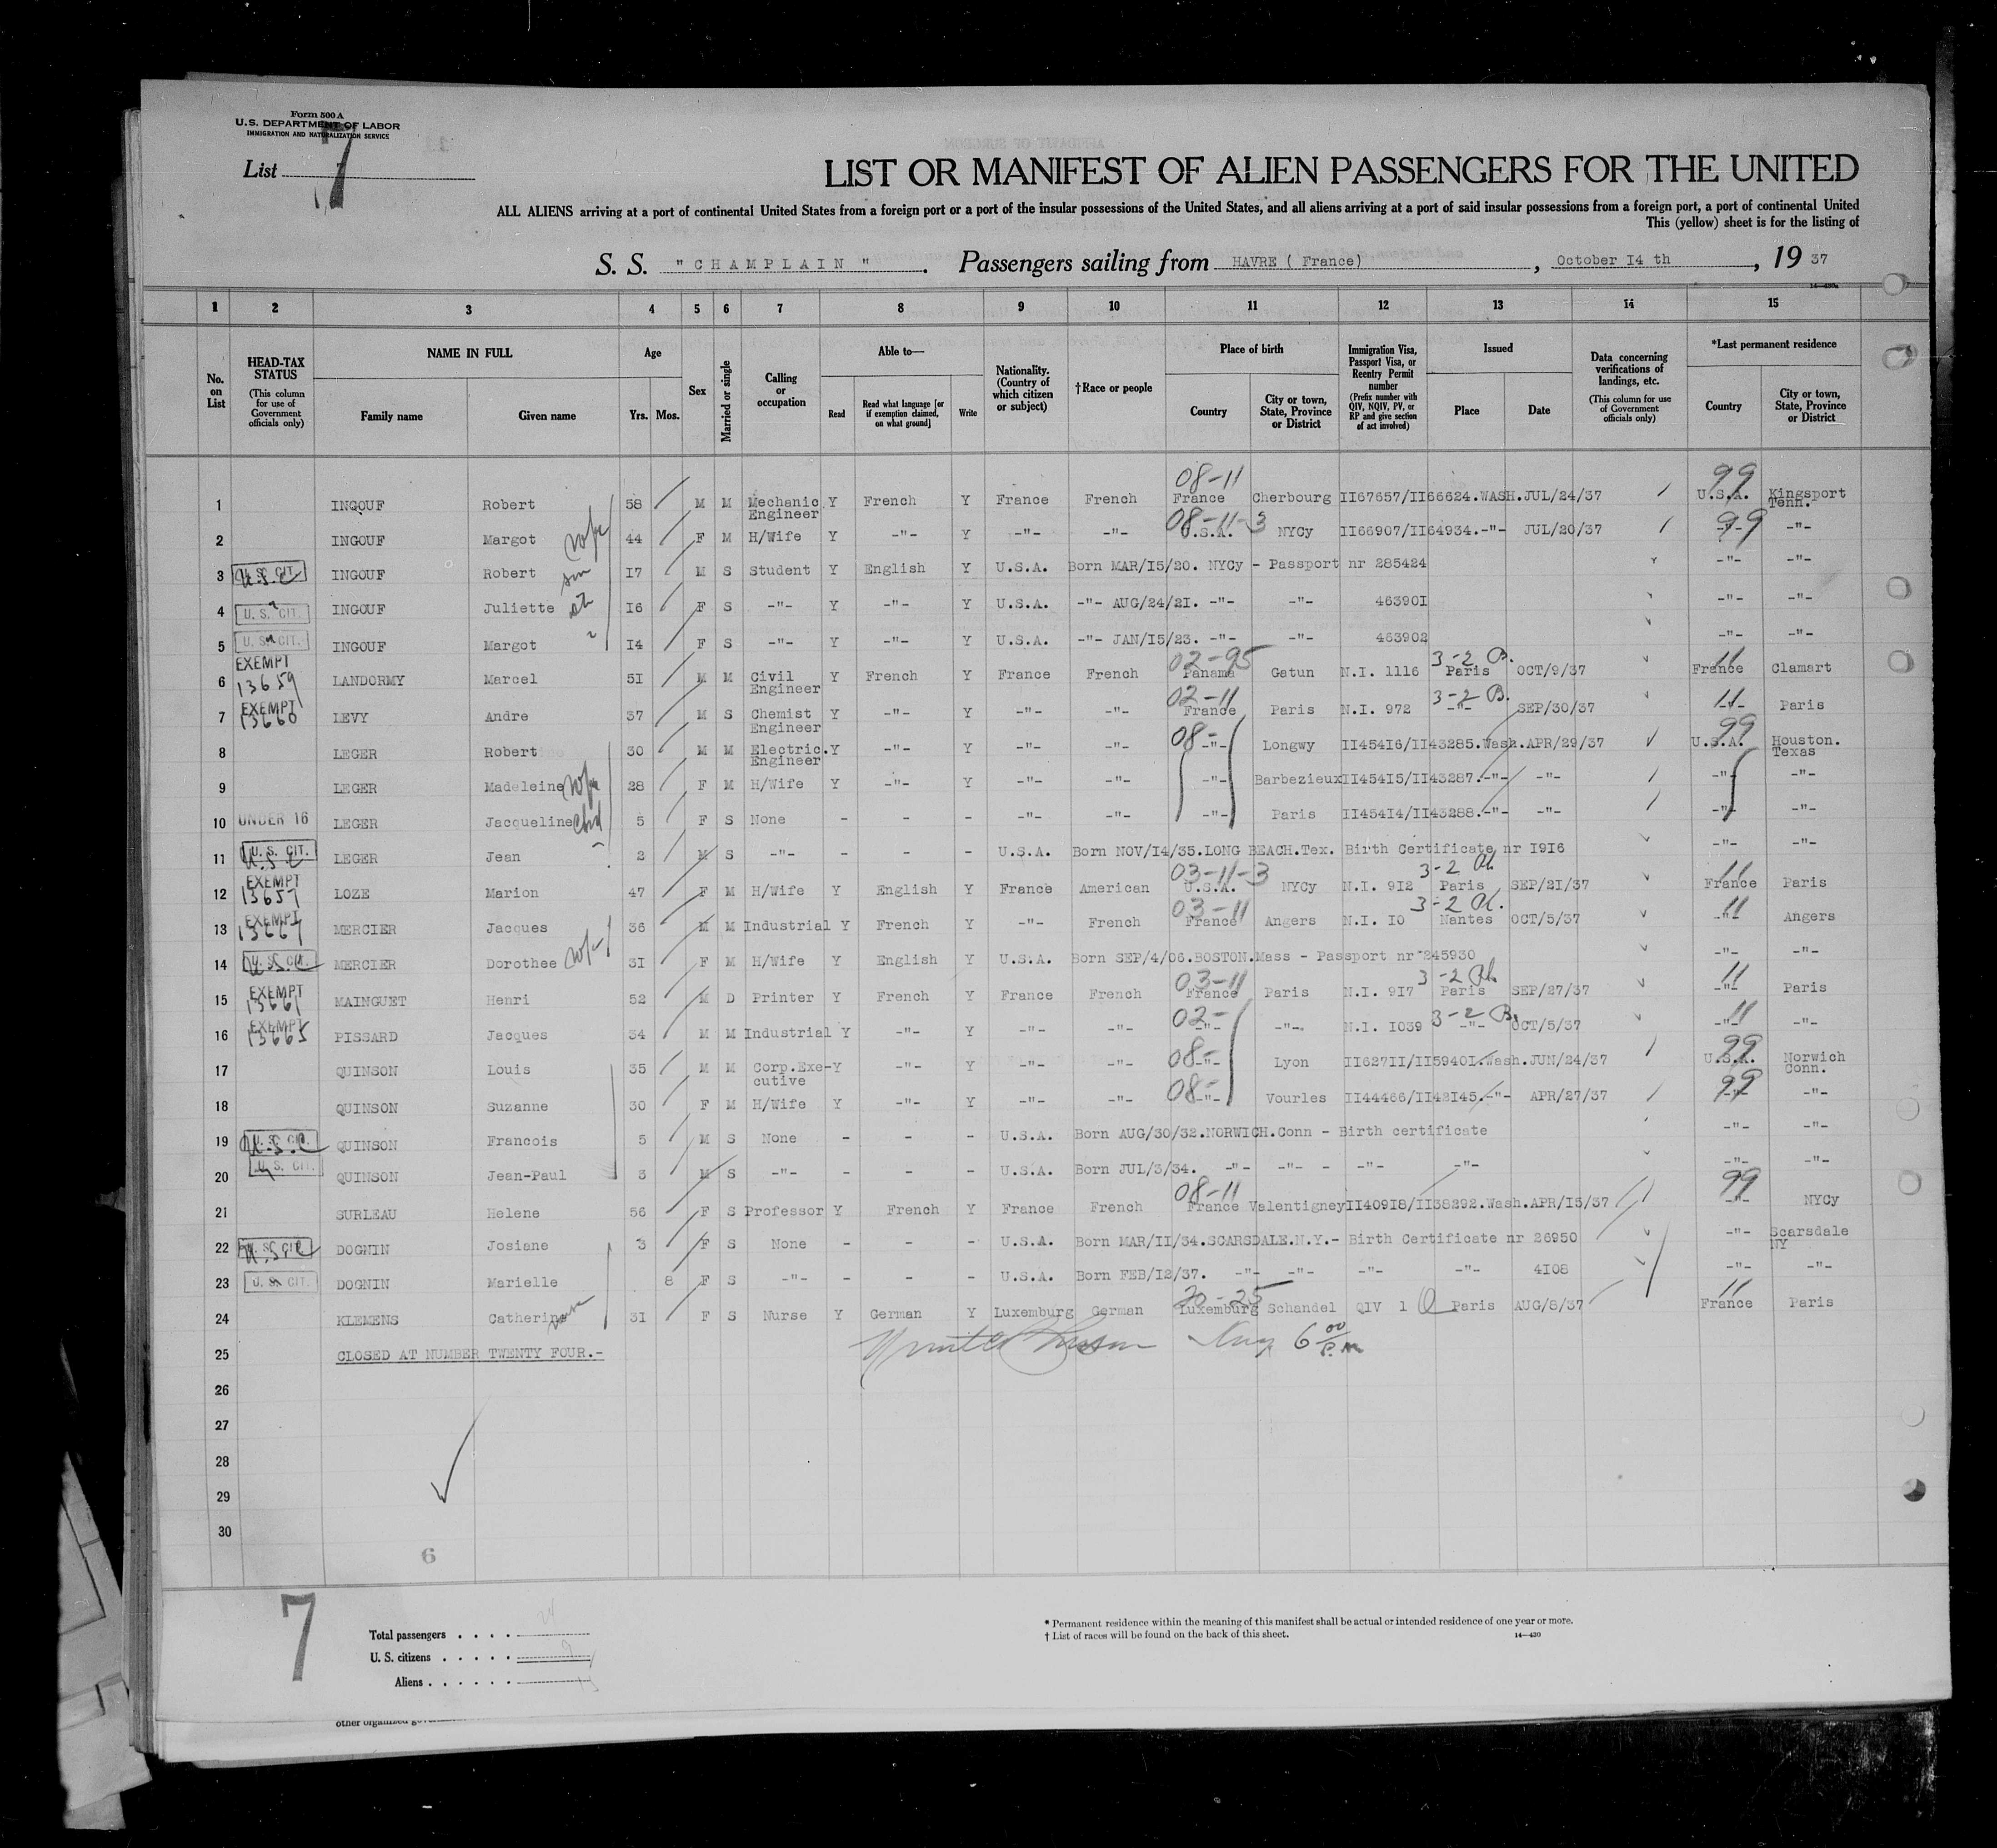 Form 500 A
U.S. DEPARTMENT OF LABOR
IMMIGRATION AND NATURALIZATION SERVICE
List 7
LIST OR MANIFEST OF ALIEN PASSENGERS FOR THE UNITED
ALL ALIENS arriving at a port of continental United States from a foreign port or a port of the insular possessions of the United States, and all aliens arriving at a port of said insular possessions from a foreign port, a port of continental United
This (yellow) sheet is for the listing of
S. S. "CHAMPLAIN". Passengers sailing from HAVRE ( France) , October I4 th , 19 37
14—430a
1 2 3 4 5 6 7 8 9 10 11 12 13 14 15
No. on List
HEAD-TAX STATUS (This column for use of Government officials only)
NAME IN FULL Family name Given name
Age Yrs. Mos.
Sex
Married or single
Calling or occupation
Able to— Read Read what language [or if exemption claimed, on what ground] Write
Nationality. (Country of which citizen or subject)
†Race or people
Place of birth Country City or town, State, Province or District
Immigration Visa, Passport Visa, or Reentry Permit number (Prefix number with QIV, NQIV, PV, or RP and give section of act involved)
Issued Place Date
Data concerning verifications of landings, etc. (This column for use of Government officials only)
*Last permanent residence Country City or town, State, Province or District
08-11 99
1 INGOUF Robert 58 M M Mechanic Engineer Y French Y France French France Cherbourg II67657/II66624.WASH.JUL/24/37 U.S.A. Kingsport Tenn.
08-11-3 99
2 INGOUF Margot wife 44 F M H/Wife Y -"- Y -"- -"- U.S.A. NYCy II66907/II64934.-"- JUL/20/37 -"- -"-
3 U.S. CIT. INGOUF Robert son I7 M S Student Y English Y U.S.A. Born MAR/I5/20. NYCy - Passport nr 285424 -"- -"-
4 U.S. CIT. INGOUF Juliette I6 F S -"- Y -"- Y U.S.A. -"- AUG/24/2I. -"- -"- 46390I -"- -"-
5 U.S. CIT. INGOUF Margot I4 F S -"- Y -"- Y U.S.A. -"- JAN/I5/23. -"- -"- 463902 -"- -"-
EXEMPT 02-95 3-2 B. 11
6 13659 LANDORMY Marcel 5I M M Civil Engineer Y French Y France French Panama Gatun N.I. 1116 Paris OCT/9/37 France Clamart
EXEMPT 02-11 3-2 B. 11
7 13660 LEVY Andre 37 M S Chemist Engineer Y -"- Y -"- -"- France Paris N.I. 972 -"- SEP/30/37 -"- Paris
8 LEGER Robert 30 M M Electric. Engineer Y -"- Y -"- -"- 08- -"- Longwy II454I6/II43285.Wash.APR/29/37 99 U.S.A. Houston. Texas
9 LEGER Madeleine wife 28 F M H/Wife Y -"- Y -"- -"- -"- Barbezieux II454I5/II43287.-"- -"- -"- -"-
10 UNDER 16 LEGER Jacqueline chd 5 F S None - - - -"- -"- -"- Paris II454I4/II43288.-"- -"- -"- -"-
11 U.S. CIT. LEGER Jean 2 M S -"- - - - U.S.A. Born NOV/I4/35.LONG BEACH.Tex. Birth Certificate nr I9I6 -"- -"-
EXEMPT 03-11-3 3-2 11
12 13657 LOZE Marion 47 F M H/Wife Y English Y France American U.S.A. NYCy N.I. 9I2 Paris SEP/2I/37 France Paris
EXEMPT 03-11 3-2 11
13 13667 MERCIER Jacques 36 M M Industrial Y French Y -"- French France Angers N.I. IO Nantes OCT/5/37 -"- Angers
14 U.S. CIT. MERCIER Dorothee wife 3I F M H/Wife Y English Y U.S.A. Born SEP/4/06.BOSTON.Mass - Passport nr 245930 -"- -"-
EXEMPT 03-11 3-2 11
15 13661 MAINGUET Henri 52 M D Printer Y French Y France French France Paris N.I. 9I7 Paris SEP/27/37 -"- Paris
EXEMPT 02- 3-2 B. 11
16 13665 PISSARD Jacques 34 M M Industrial Y -"- Y -"- -"- -"- -"-. N.I. I039 -"- OCT/5/37 -"- -"-
17 QUINSON Louis 35 M M Corp.Exe- cutive Y -"- Y -"- -"- 08- -"- Lyon II627II/II5940I.Wash.JUN/24/37 99 U.S.A. Norwich Conn.
18 QUINSON Suzanne 30 F M H/Wife Y -"- Y -"- -"- 08- -"- Vourles II44466/II42I45.-"- APR/27/37 99 -"- -"-
19 U.S. CIT. QUINSON Francois 5 M S None - - - U.S.A. Born AUG/30/32.NORWICH.Conn - Birth certificate -"- -"-
20 U.S. CIT. QUINSON Jean-Paul 3 M S -"- - - - U.S.A. Born JUL/3/34. -"- -"- - -"- -"- -"- -"-
08-11 99
21 SURLEAU Helene 56 F S Professor Y French Y France French France Valentigney II409I8/II38292.Wash.APR/I5/37 -"- NYCy
22 U.S. CIT. DOGNIN Josiane 3 F S None - - - U.S.A. Born MAR/II/34.SCARSDALE.N.Y.- Birth Certificate nr 26950 -"- Scarsdale NY
23 U.S. CIT. DOGNIN Marielle 8 F S -"- - - - U.S.A. Born FEB/I2/37. -"- -"- -"- -"- 4I08 -"- -"-
30-25 11
24 KLEMENS Catherine nurse 3I F S Nurse Y German Y Luxemburg German Luxemburg Schandel QIV 1 Paris AUG/8/37 France Paris
25 CLOSED AT NUMBER TWENTY FOUR.-
6 00 P.M
26
27
28
29
30
6
7
Total passengers . . . .
U. S. citizens . . . . . 9
Aliens . . . . . . 15
* Permanent residence within the meaning of this manifest shall be actual or intended residence of one year or more.
† List of races will be found on the back of this sheet.
14—430
other organized